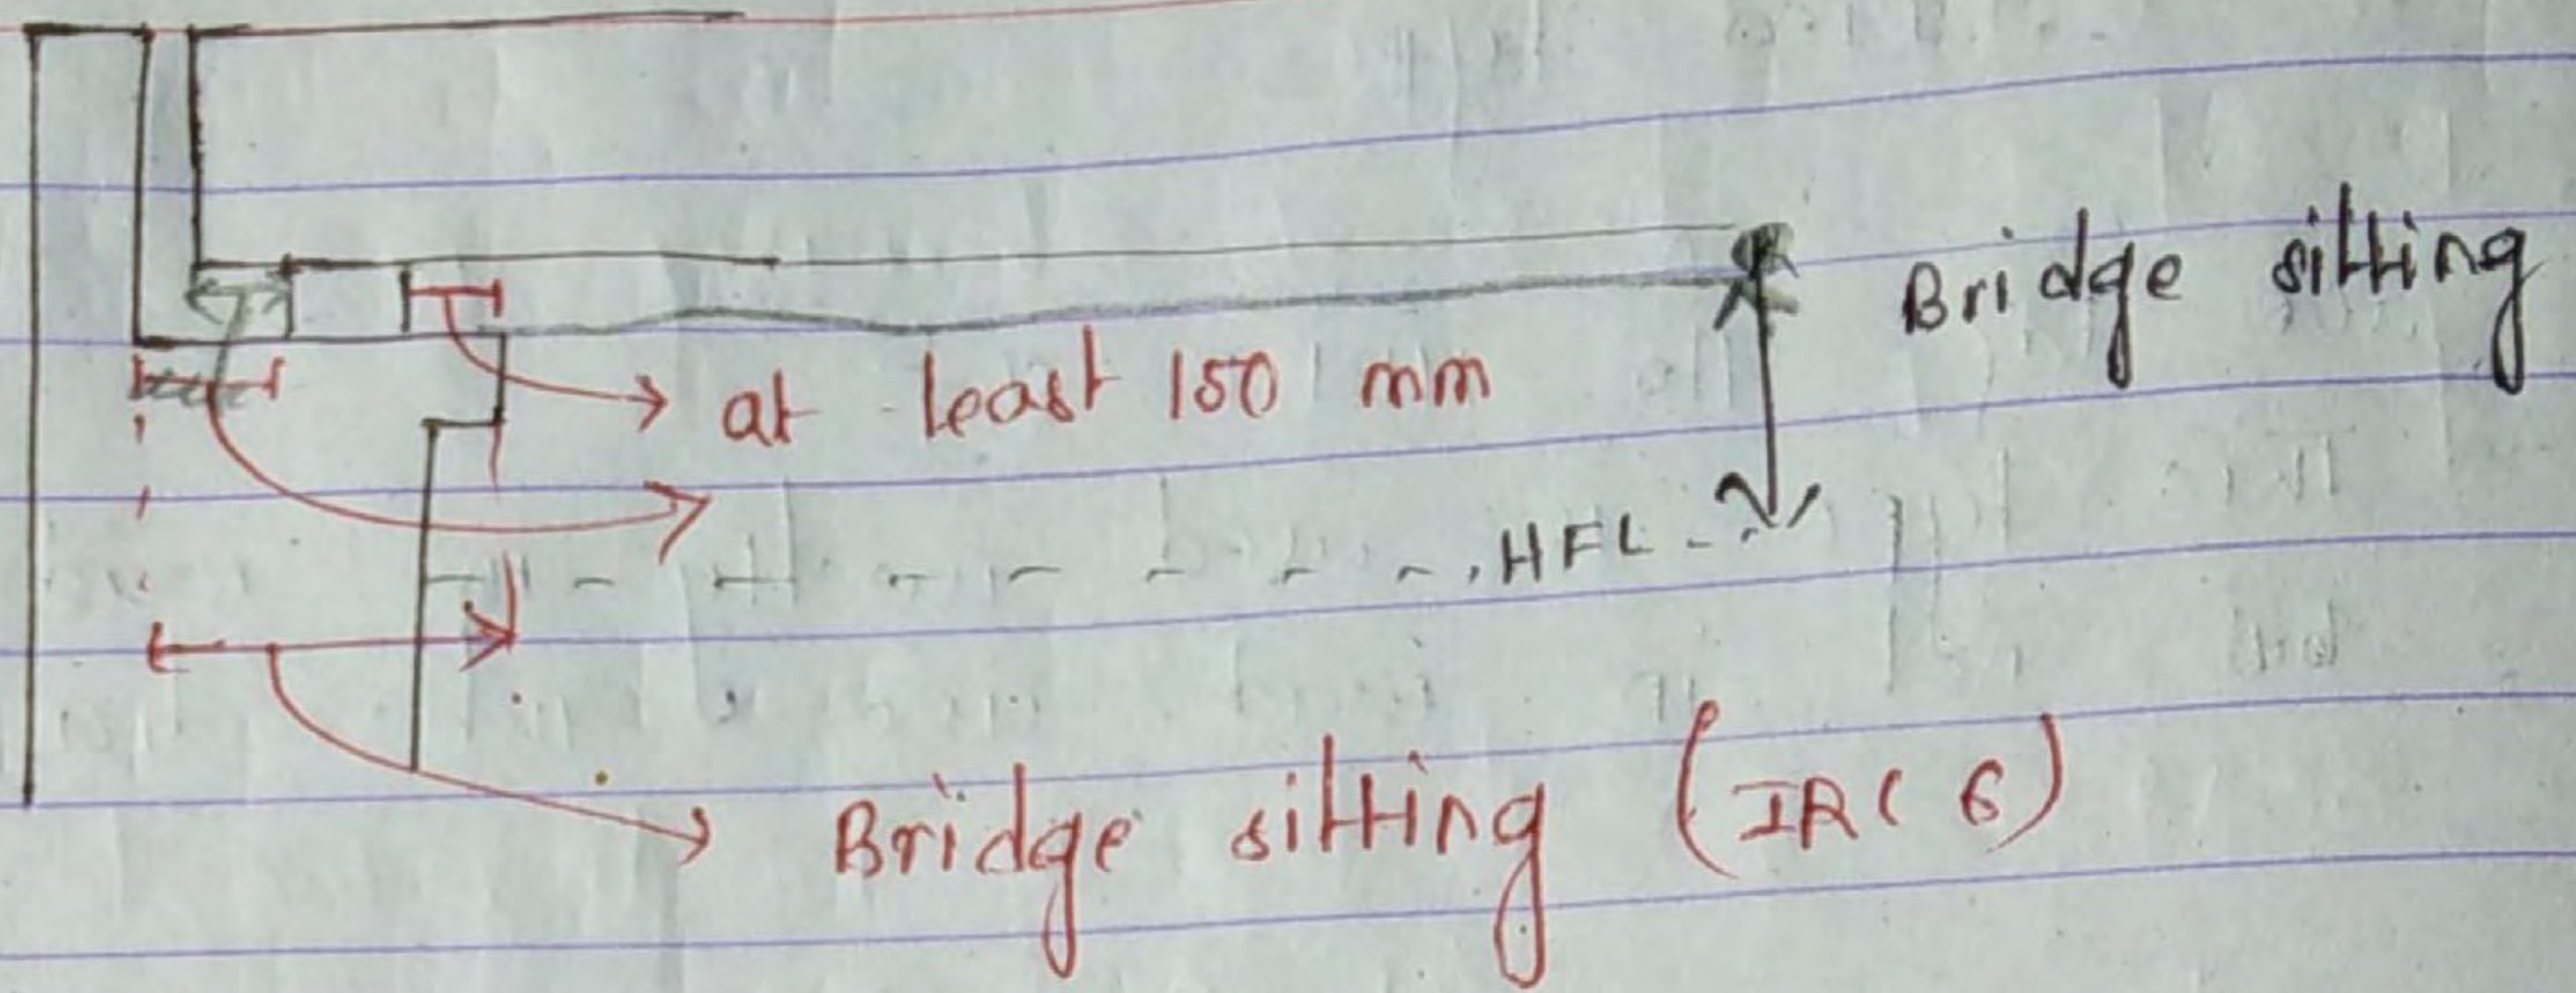 Bridge sitting
at least 150 mm
HFL
Bridge sitting (IRC 6)